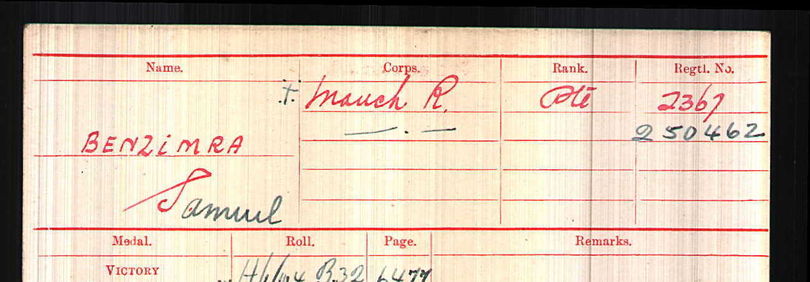 Name. Corps. Rank. Regtl. No.
Manch R. Pte 2367
— . — 250462
BENZIMRA
Samuel
Medal. Roll. Page. Remarks.
VICTORY B.32 6477